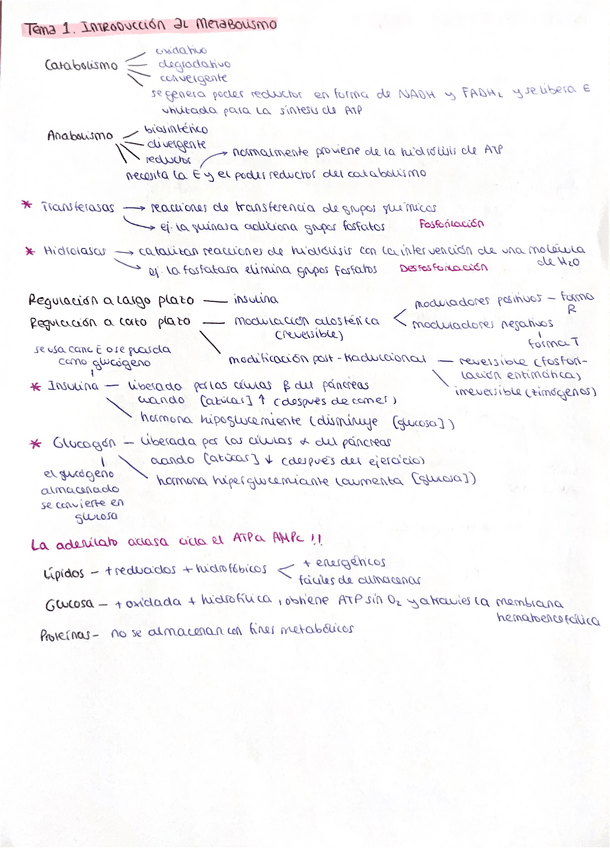 Tema 1. Introducción al Metabolismo
Catabolismo
oxidativo
degradativo
convergente
se genera poder reductor en forma de NADH y FADH₂ y se libera E
utilizada para la síntesis de ATP
Anabolismo
biosintético
divergente
reductor
normalmente proviene de la hidrólisis de ATP
necesita la E y el poder reductor del catabolismo
* Transferasas → reacciones de transferencia de grupos químicos
→ ej. la quinasa adiciona grupos fosfatos Fosforilación
* Hidrolasas → catalizan reacciones de hidrólisis con la intervención de una molécula
de H₂O
→ ej. la fosfatasa elimina grupos fosfatos Desfosforilación
Regulación a largo plazo — insulina
Regulación a corto plazo — modulación alostérica
(reversible)
moduladores positivos – forma
R
moduladores negativos
forma T
modificación post-traduccional — reversible (fosfori-
lación enzimática)
irreversible (zimógenos)
se usa como E o se guarda
como glucógeno
* Insulina — liberado por las células β del páncreas
cuando [azúcar] ↑ (después de comer)
hormona hipoglucemiante (disminuye [glucosa])
* Glucagón — liberada por las células α del páncreas
cuando [azúcar] ↓ (después del ejercicio)
hormona hiperglucemiante (aumenta [glucosa])
el glucógeno
almacenado
se convierte en
glucosa
La adenilato ciclasa cicla el ATP a AMPc !!
Lípidos – + reducidos + hidrofóbicos
+ energéticos
fáciles de almacenar
Glucosa – + oxidada + hidrofílica, obtiene ATP sin O₂ y atraviesa la membrana
hematoencefálica
Proteínas – no se almacenan con fines metabólicos